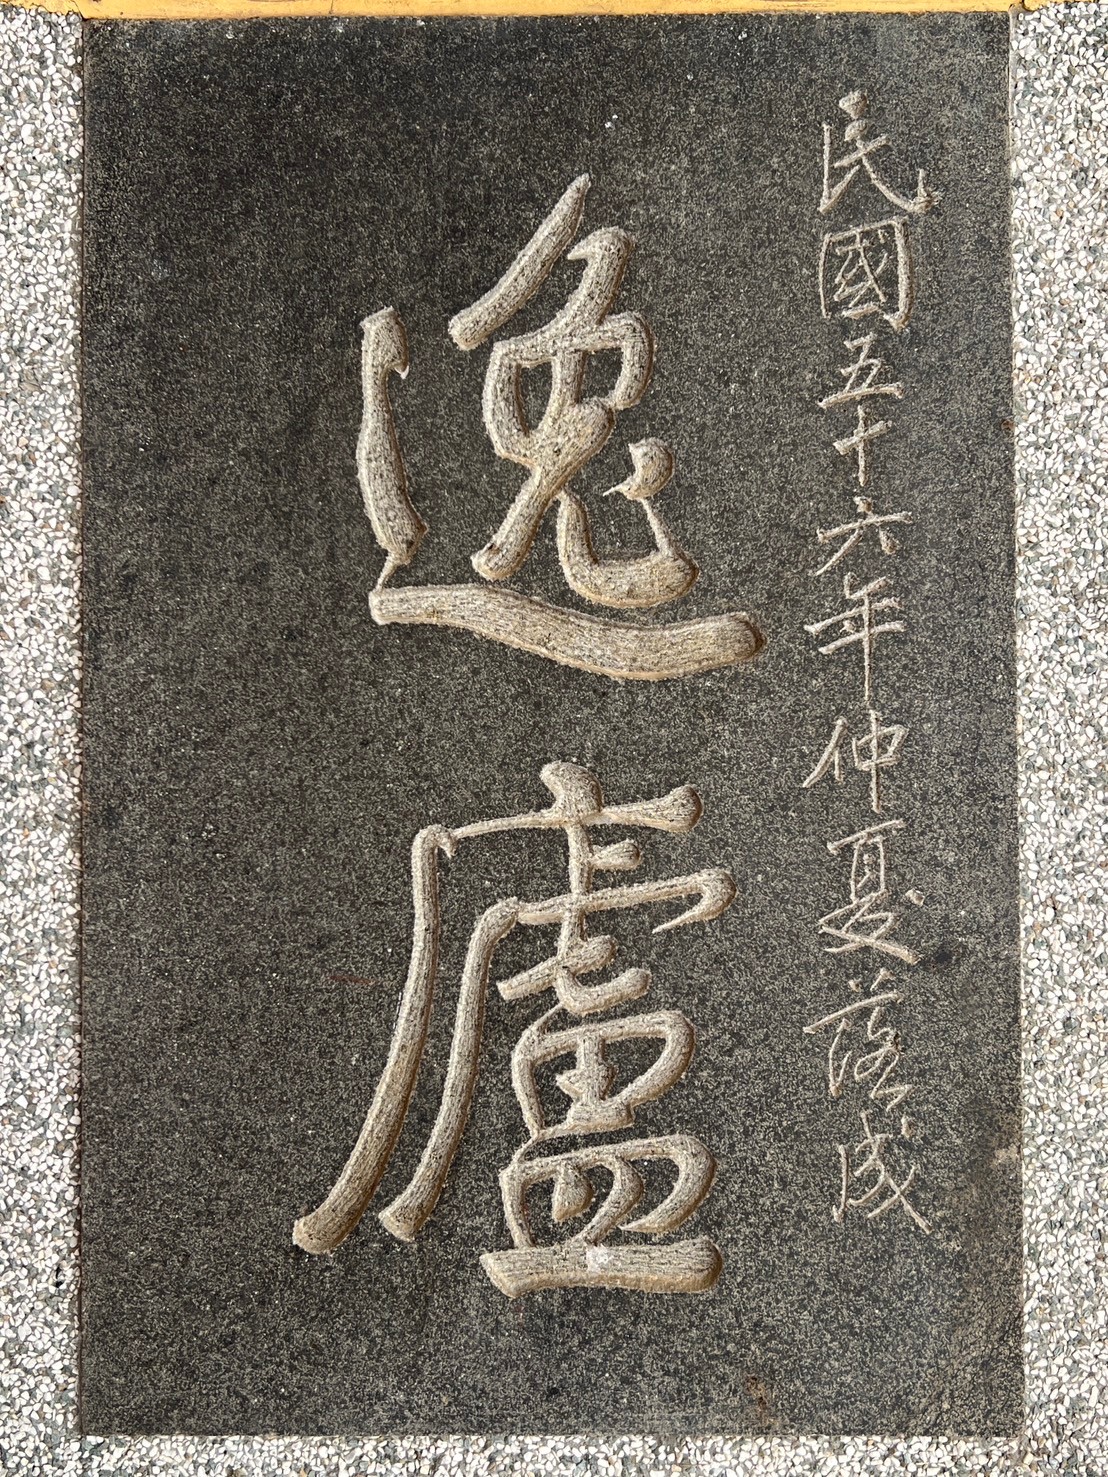 民國五十六年仲夏落成
逸廬